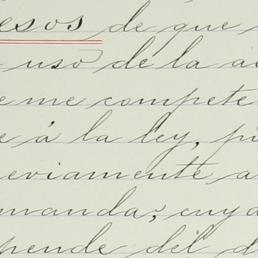 esos de que
uso de la au
e me compete
e á la ley, pi
eviamente a
manda; cuya
pende del d